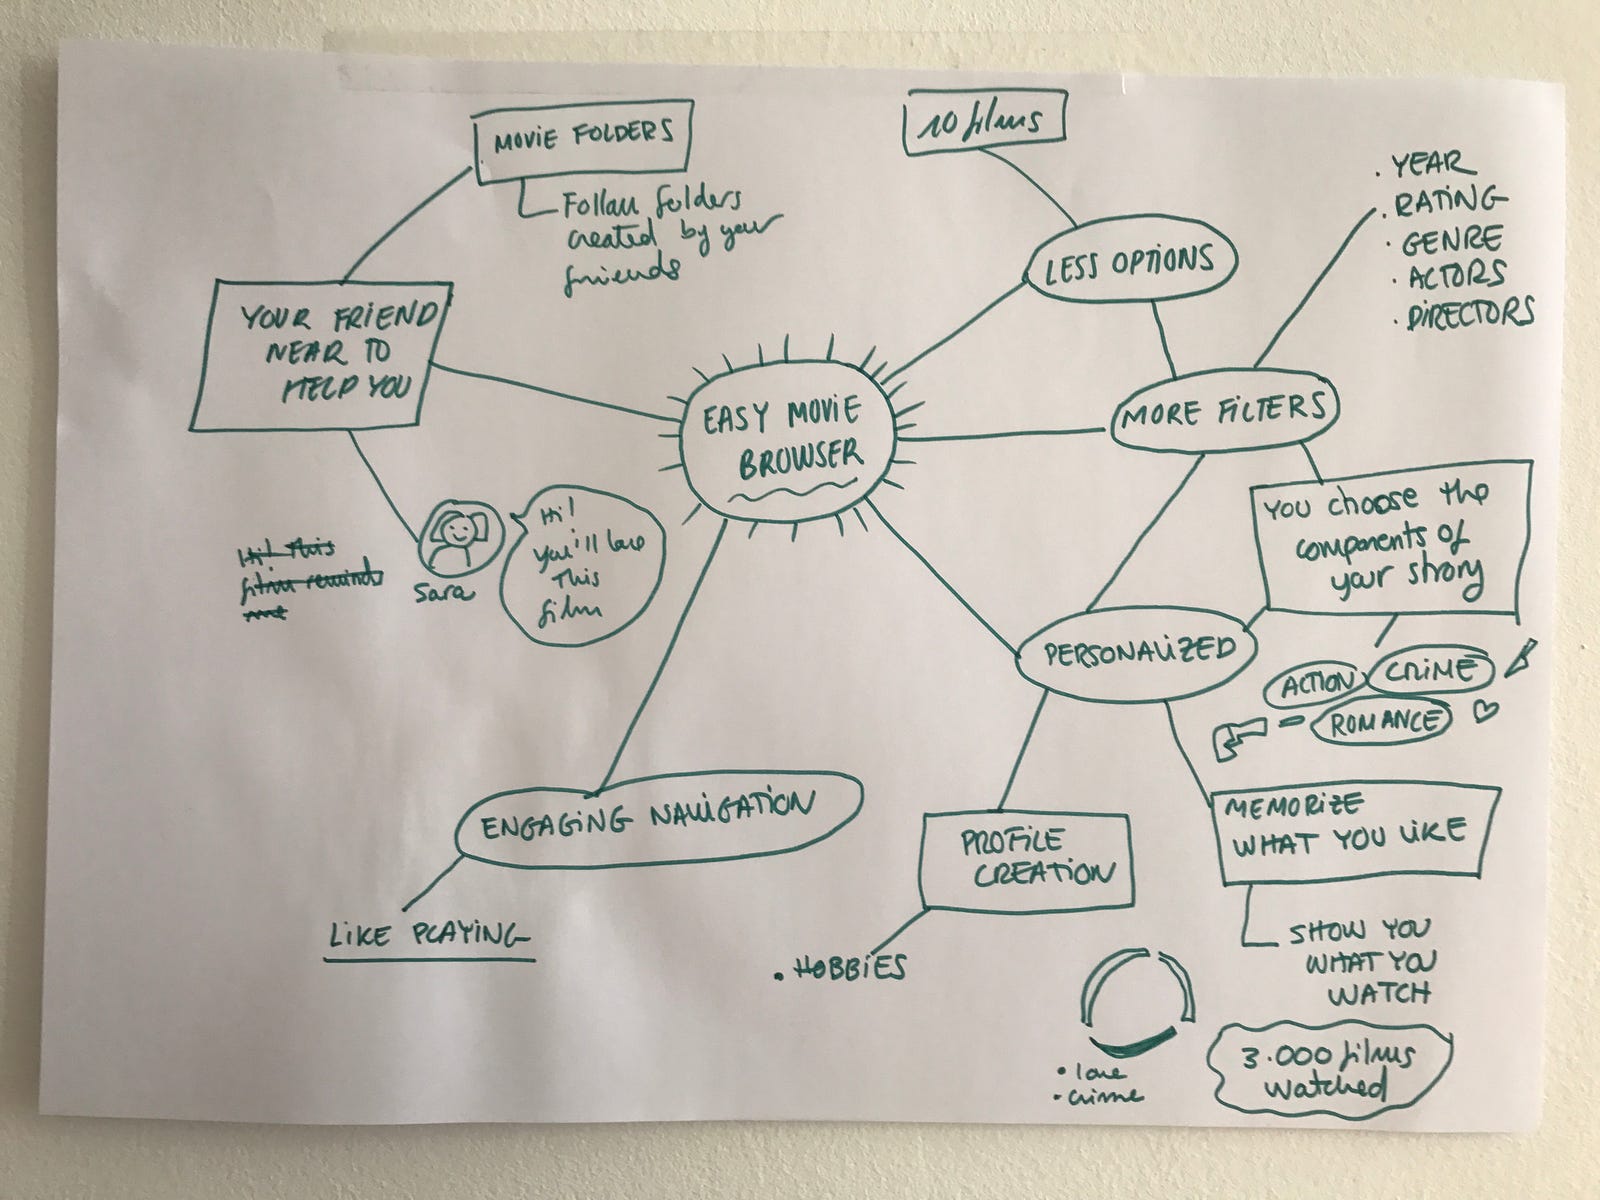 MOVIE FOLDERS
Follow folders
created by your
friends
YOUR FRIEND
NEAR TO
HELP YOU
Hi! This
film reminds
me
Sara
Hi!
you'll love
This
film
EASY MOVIE
BROWSER
10 films
LESS OPTIONS
. YEAR
. RATING
. GENRE
. ACTORS
. DIRECTORS
MORE FILTERS
YOU choose the
components of
your strory
ACTION
CRIME
ROMANCE
PERSONALIZED
ENGAGING NAVIGATION
LIKE PLAYING
PROFILE
CREATION
. HOBBIES
MEMORIZE
WHAT YOU LIKE
SHOW YOU
WHAT YOU
WATCH
• love
• crime
3.000 films
watched